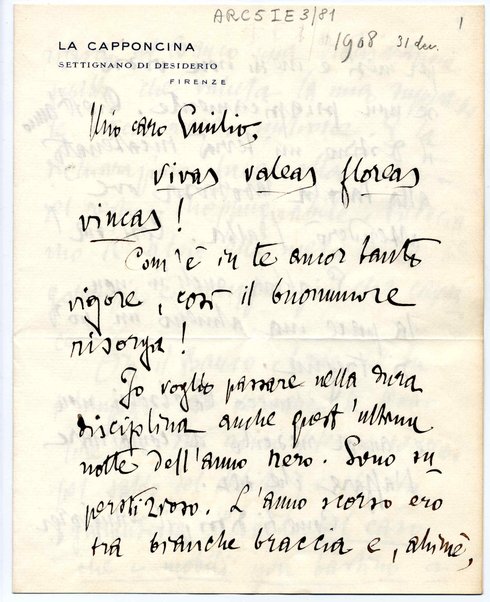 ARC5IE3/81
1
1908 31 dic.
LA CAPPONCINA
SETTIGNANO DI DESIDERIO
FIRENZE
Mio caro Emilio,
vivas valeas floreas
vincas!
Com'è in te ancor tanto
vigore, così il buonumore
risorga!
Io voglio passare nella dura
disciplina anche quest'ultima
notte dell'anno nero. Sono su-
perstizioso. L'anno scorso ero
tra bianche braccia e, ahimè,